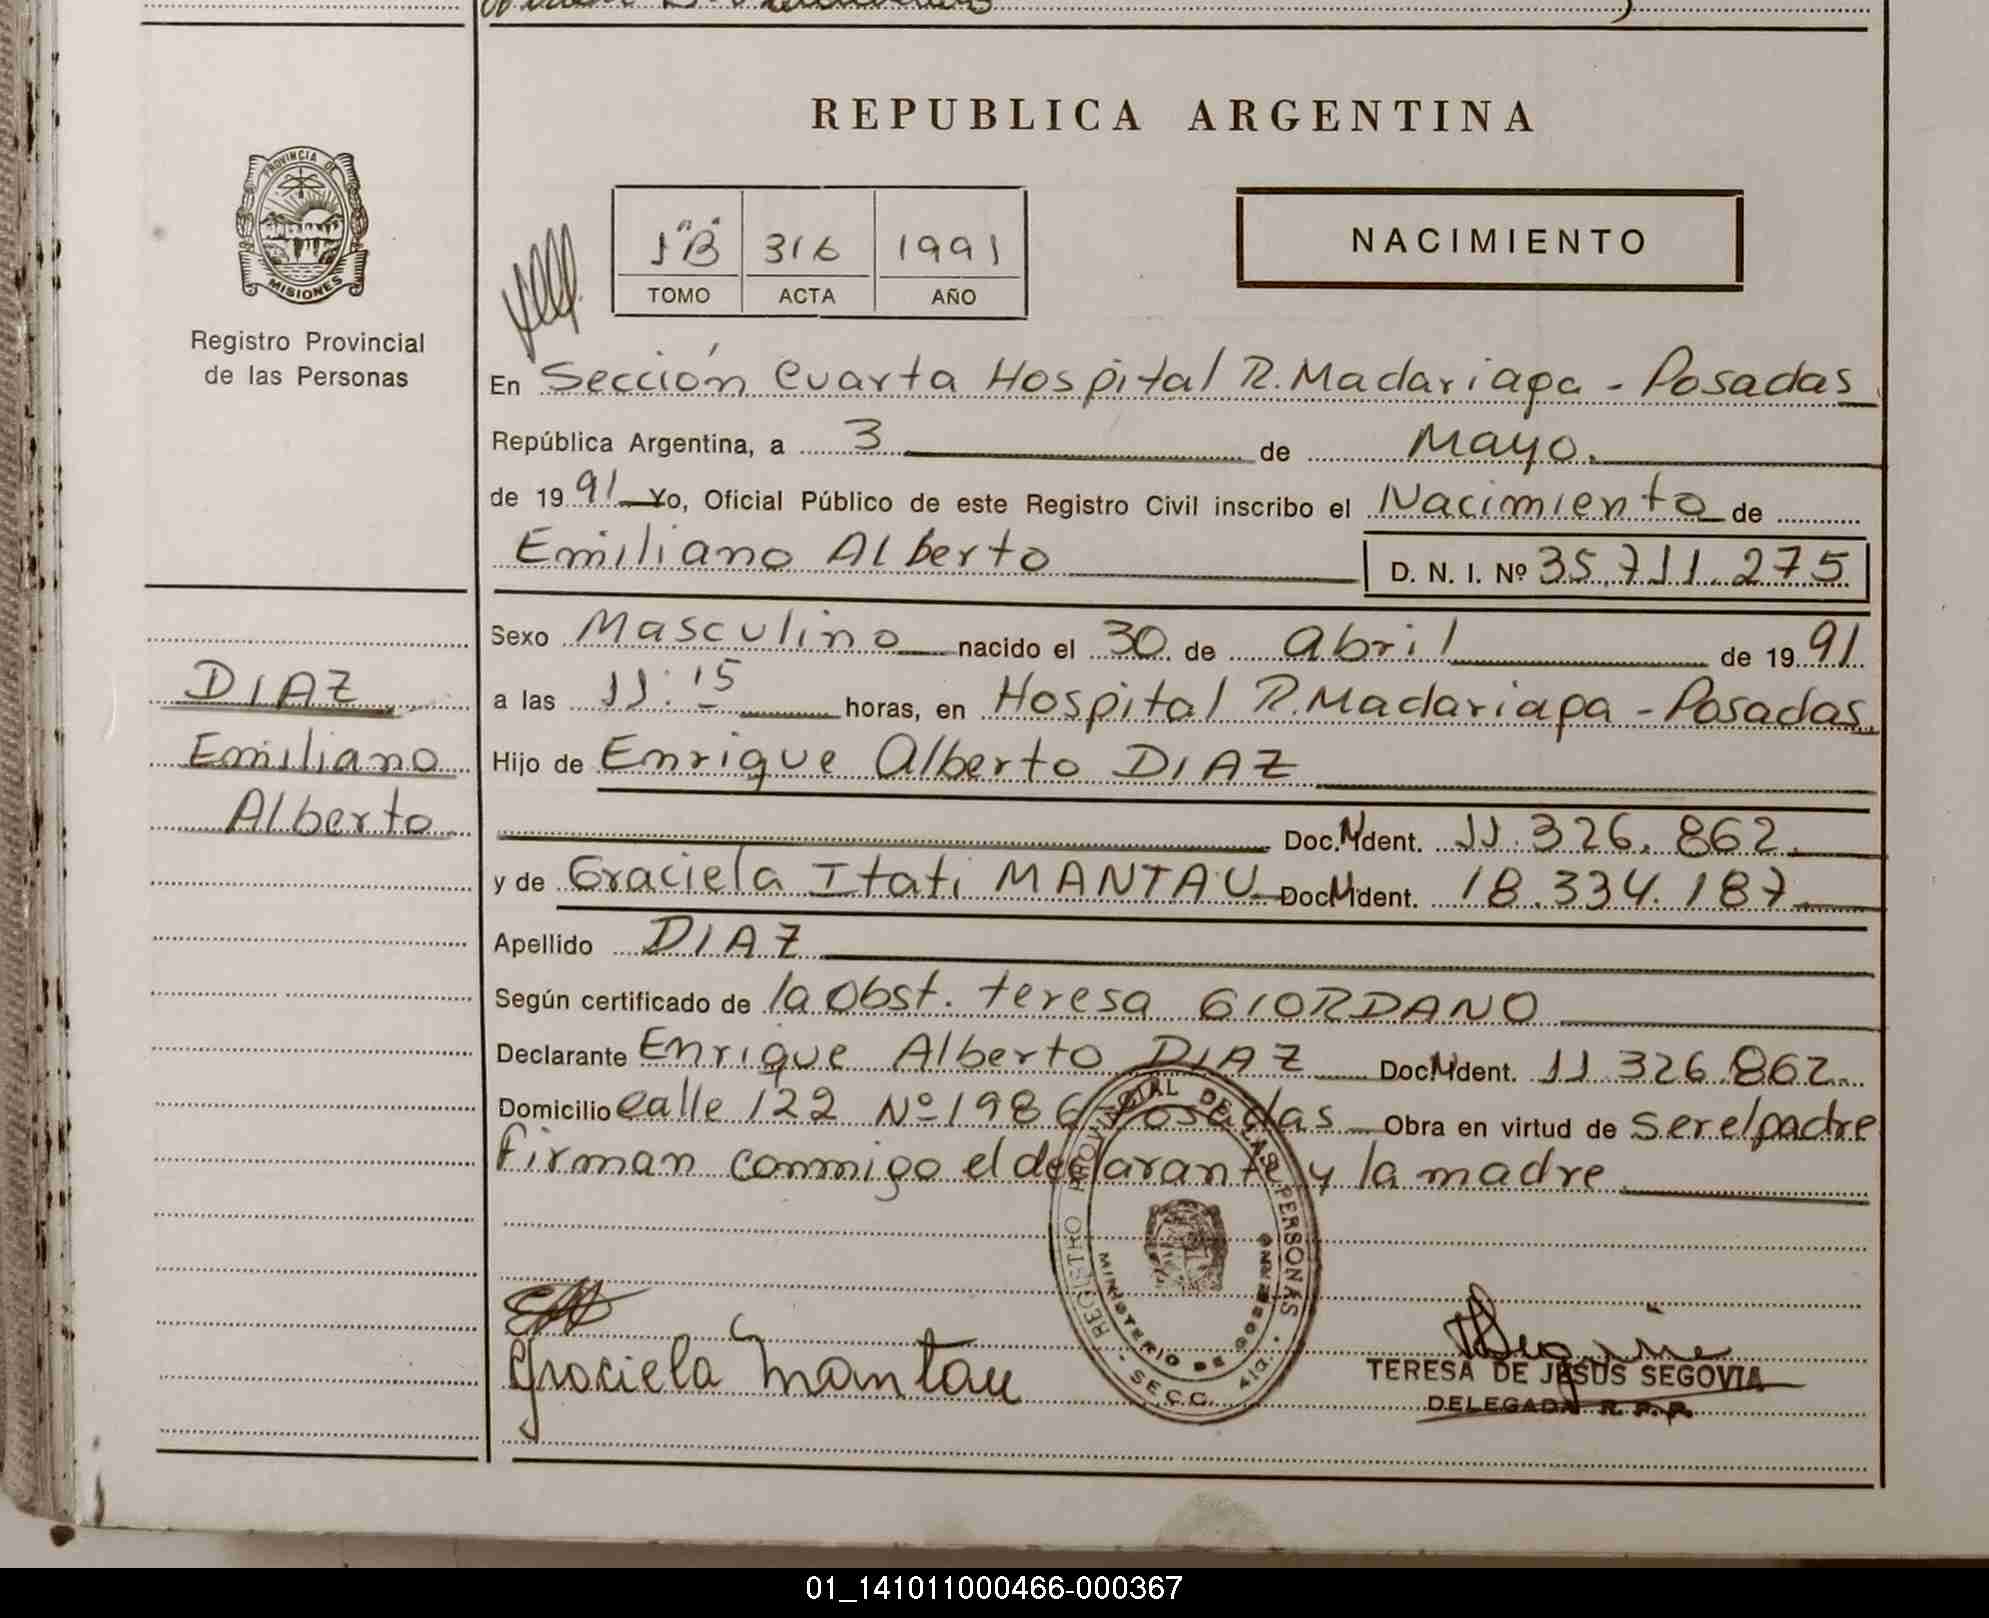 REPUBLICA ARGENTINA
PROVINCIA DE
MISIONES
Registro Provincial
de las Personas
1"B" 316 1991
TOMO ACTA AÑO
NACIMIENTO
En Sección Cuarta Hospital R. Madariaga - Posadas
República Argentina, a 3 de Mayo.
de 1991 Yo, Oficial Público de este Registro Civil inscribo el Nacimiento de
Emiliano Alberto D. N. I. Nº 35.711.275
Sexo Masculino nacido el 30 de Abril de 1991
a las 11:15 horas, en Hospital R. Madariaga - Posadas.
Hijo de Enrique Alberto DIAZ
Doc. M Ident. 11.326.862.
y de Graciela Itati MANTAU Doc. M Ident. 18.334.187
Apellido DIAZ
Según certificado de la Obst. teresa GIORDANO
Declarante Enrique Alberto DIAZ Doc. M Ident. 11.326.862.
Domicilio calle 122 Nº 1986 Posadas Obra en virtud de ser el padre
Firman conmigo el declarante y la madre
DIAZ
Emiliano
Alberto
REGISTRO PROVINCIAL DE LAS PERSONAS
MINISTERIO DE GOBIERNO
SECC. 4ta.
Graciela Mantau
TERESA DE JESUS SEGOVIA
DELEGADA R. P. P.
01_141011000466-000367